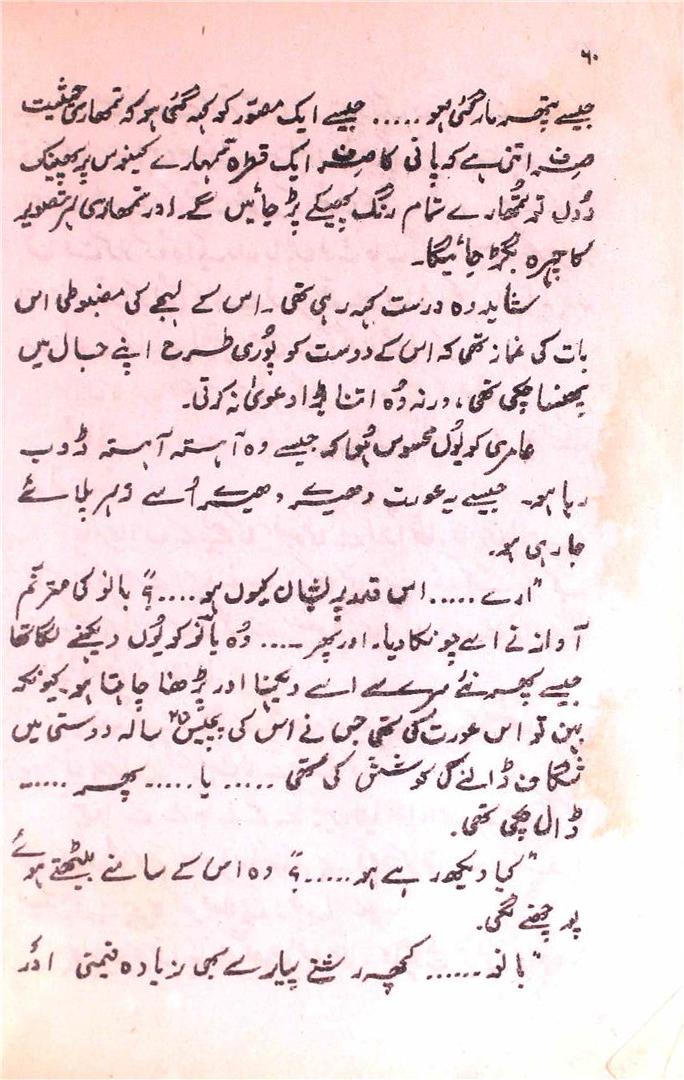 ۶۰
جیسے پتھر مار گئی ہو ..... جیسے ایک مصّور کو کہہ گئی ہو کہ تمھاری حیثیت
صرف اتنی ہے کہ پانی کا صرف ایک قطرہ تمہارے کینوس پر پھینک
دُوں تو تُمھارے تمام رنگ پھیکے پڑ جائیں گے۔ اور تمھاری ہر تصویر
کا چہرہ بگڑ جائیگا۔
شاید وہ درست کہہ رہی تھی ۔ اس کے لہجے کی مضبوطی اس
بات کی غماز تھی کہ اس کے دوست کو پُوری طرح اپنے جال میں
پھنسا چکی تھی، ورنہ وُہ اتنا بڑا دعویٰ نہ کرتی۔
عامری کو یُوں محسوس ہُوا کہ جیسے وہ آہستہ آہستہ ڈوب
رہا ہو۔ جیسے یہ عورت دھیرے دھیرے اُسے زہر پلائے
جا رہی ہو۔
"ارے ..... اس قدر پریشان کیوں ہو ....؟" بانو کی مترنم
آواز نے اسے چونکا دیا۔ اور پھر .... وُہ بانو کو یُوں دیکھنے لگا تھا
جیسے پھر نئے سرے سے اسے دیکھنا اور پڑھنا چاہتا ہو۔ کیونکہ
یہی تو اس عورت کی تھی جس نے اس کی پچیس ۲۵ سالہ دوستی میں
شگاف ڈالنے کی کوشش کی تھی ..... یا ..... پھر .....
ڈال چکی تھی۔
"کیا دیکھ رہے ہو .....؟" وہ اس کے سامنے بیٹھتے ہوئے
پوچھنے لگی۔
"بانو ...... کچھ رشتے پیارے بھی زیادہ قیمتی اور